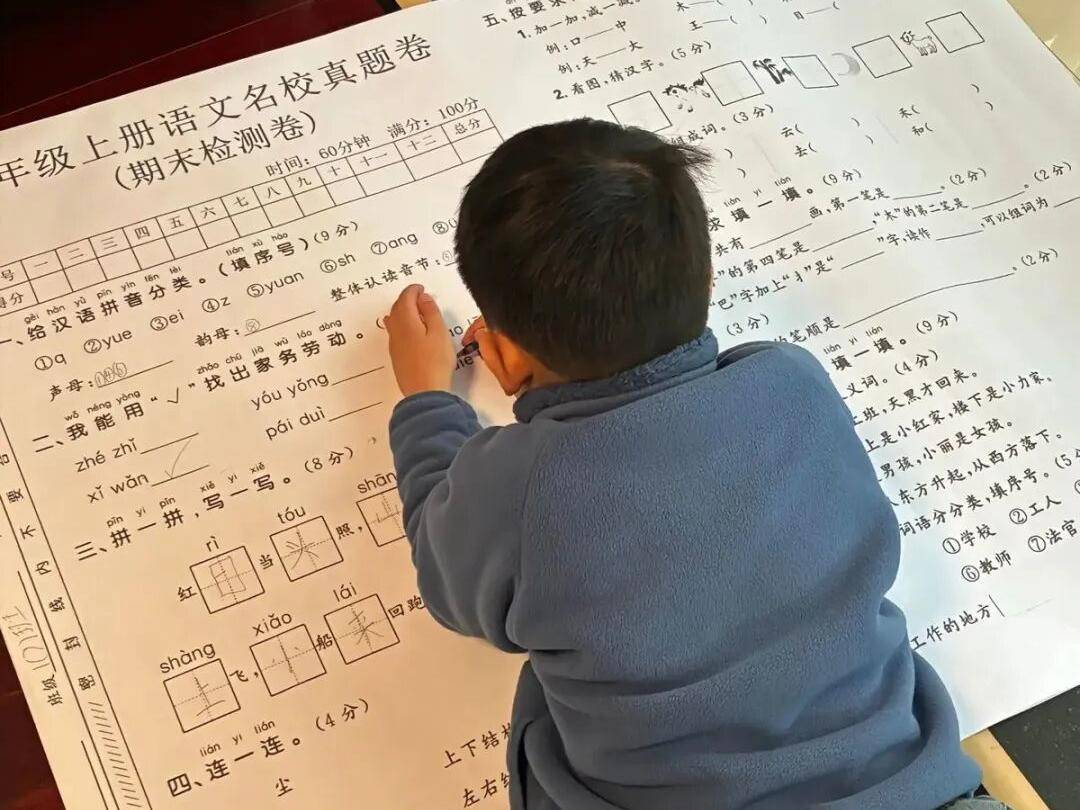 年级上册语文名校真题卷
(期末检测卷)
时间：60分钟 满分：100分
号 一 二 三 四 五 六 七 八 九 十 十一 十二 总分
得分
gěi hàn yǔ pīn yīn fēn lèi lián xù hào
一、给汉语拼音分类。(填序号)(9分)
①q ②yue ③ei ④z ⑤yuan ⑥sh ⑦ang
声母: 韵母: 整体认读音节:
wǒ néng yòng zhǎo chū jiā wù láo dòng
二、我能用“√”找出家务劳动。
zhé zhǐ yóu yǒng
xǐ wǎn √ pái duì
pīn yi pīn xiě yi xiě
三、拼一拼,写一写。(8分)
rì tóu shàng
红日当头照,上
shàng xiǎo lái
上飞,小船来回跑
lián yi lián
四、连一连。(4分)
尘
上下结构
左右结
密 封 线 内 不 要
班级
五、按要求
1.加一加,减一减。
例:口——中 木——( )
例:天——大 王——( ) 日—( )
2.看图,猜汉字。(5分)
组成词。(3分)
云( ) 禾( )
去( ) 和( )
求填一填。(9分)
共有 画,第一笔是 。(2分)
”的第四笔是 ,“木”的第二笔是 。(2分)
“巴”字加上“扌”是“ ”字,读作 ,可以组词为
的笔顺是 。(2分)
(3分)
填一填。(9分)
义词。(4分)
班,天黑才回来。
上是小红家,楼下是小力家。
男孩,小丽是女孩。
东方升起,从西方落下。
词语分分类,填序号。(5分
①学校 ②工人
⑥教师 ⑦法官
工作的地方